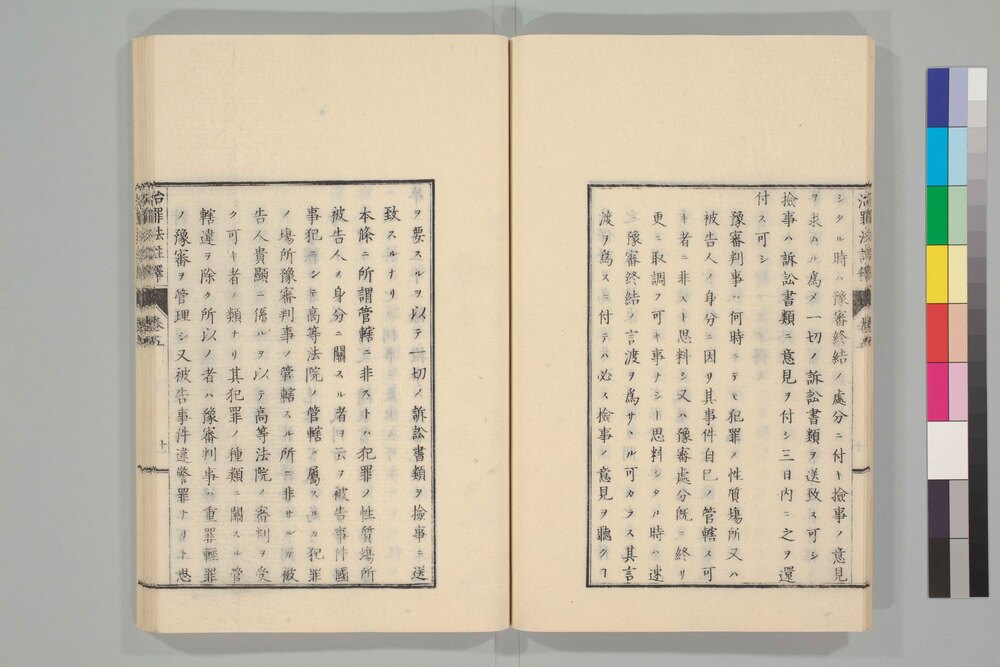 シタル時ハ豫審終結ノ處分ニ付キ撿事ノ意見
ヲ求ムル爲メ一切ノ訴訟書類ヲ送致ス可シ
撿事ハ訴訟書類ニ意見ヲ付シ三日內ニ之ヲ還
付ス可シ
豫審判事ハ何時ニテモ犯罪ノ性質塲所又ハ
被告人ノ身分ニ因リ其事件自己ノ管轄ス可
キ者ニ非スト思料シ又ハ豫審處分旣ニ終リ
更ニ取調フ可キ事ナシト思料シタル時ハ速
ニ豫審終結ノ言渡ヲ爲サヽル可カラス其言
渡ヲ爲スニ付テハ必ス撿事ノ意見ヲ聽クヿ
治罪法註釋
卷五
十一
ヲ要スルヲ以テ一切ノ訴訟書類ヲ撿事ニ送
致スルナリ
本條ニ所謂管轄ニ非ストハ犯罪ノ性質塲所
被告人ノ身分ニ關スル者ヲ云フ被告事件國
事犯ニシテ高等法院ノ管轄ニ屬スル カ犯罪
ノ塲所豫審判事ノ管轄スル所ニ非サルカ被
告人貴顯ニ係ルヲ以テ高等法院ノ審判ヲ受
ク可キ者ノ類ナリ其犯罪ノ種類ニ關スル管
轄違ヲ除ク所以ノ者ハ豫審判事ハ重罪輕罪
ノ豫審ヲ管理シ又被告事件違警罪ナリト思